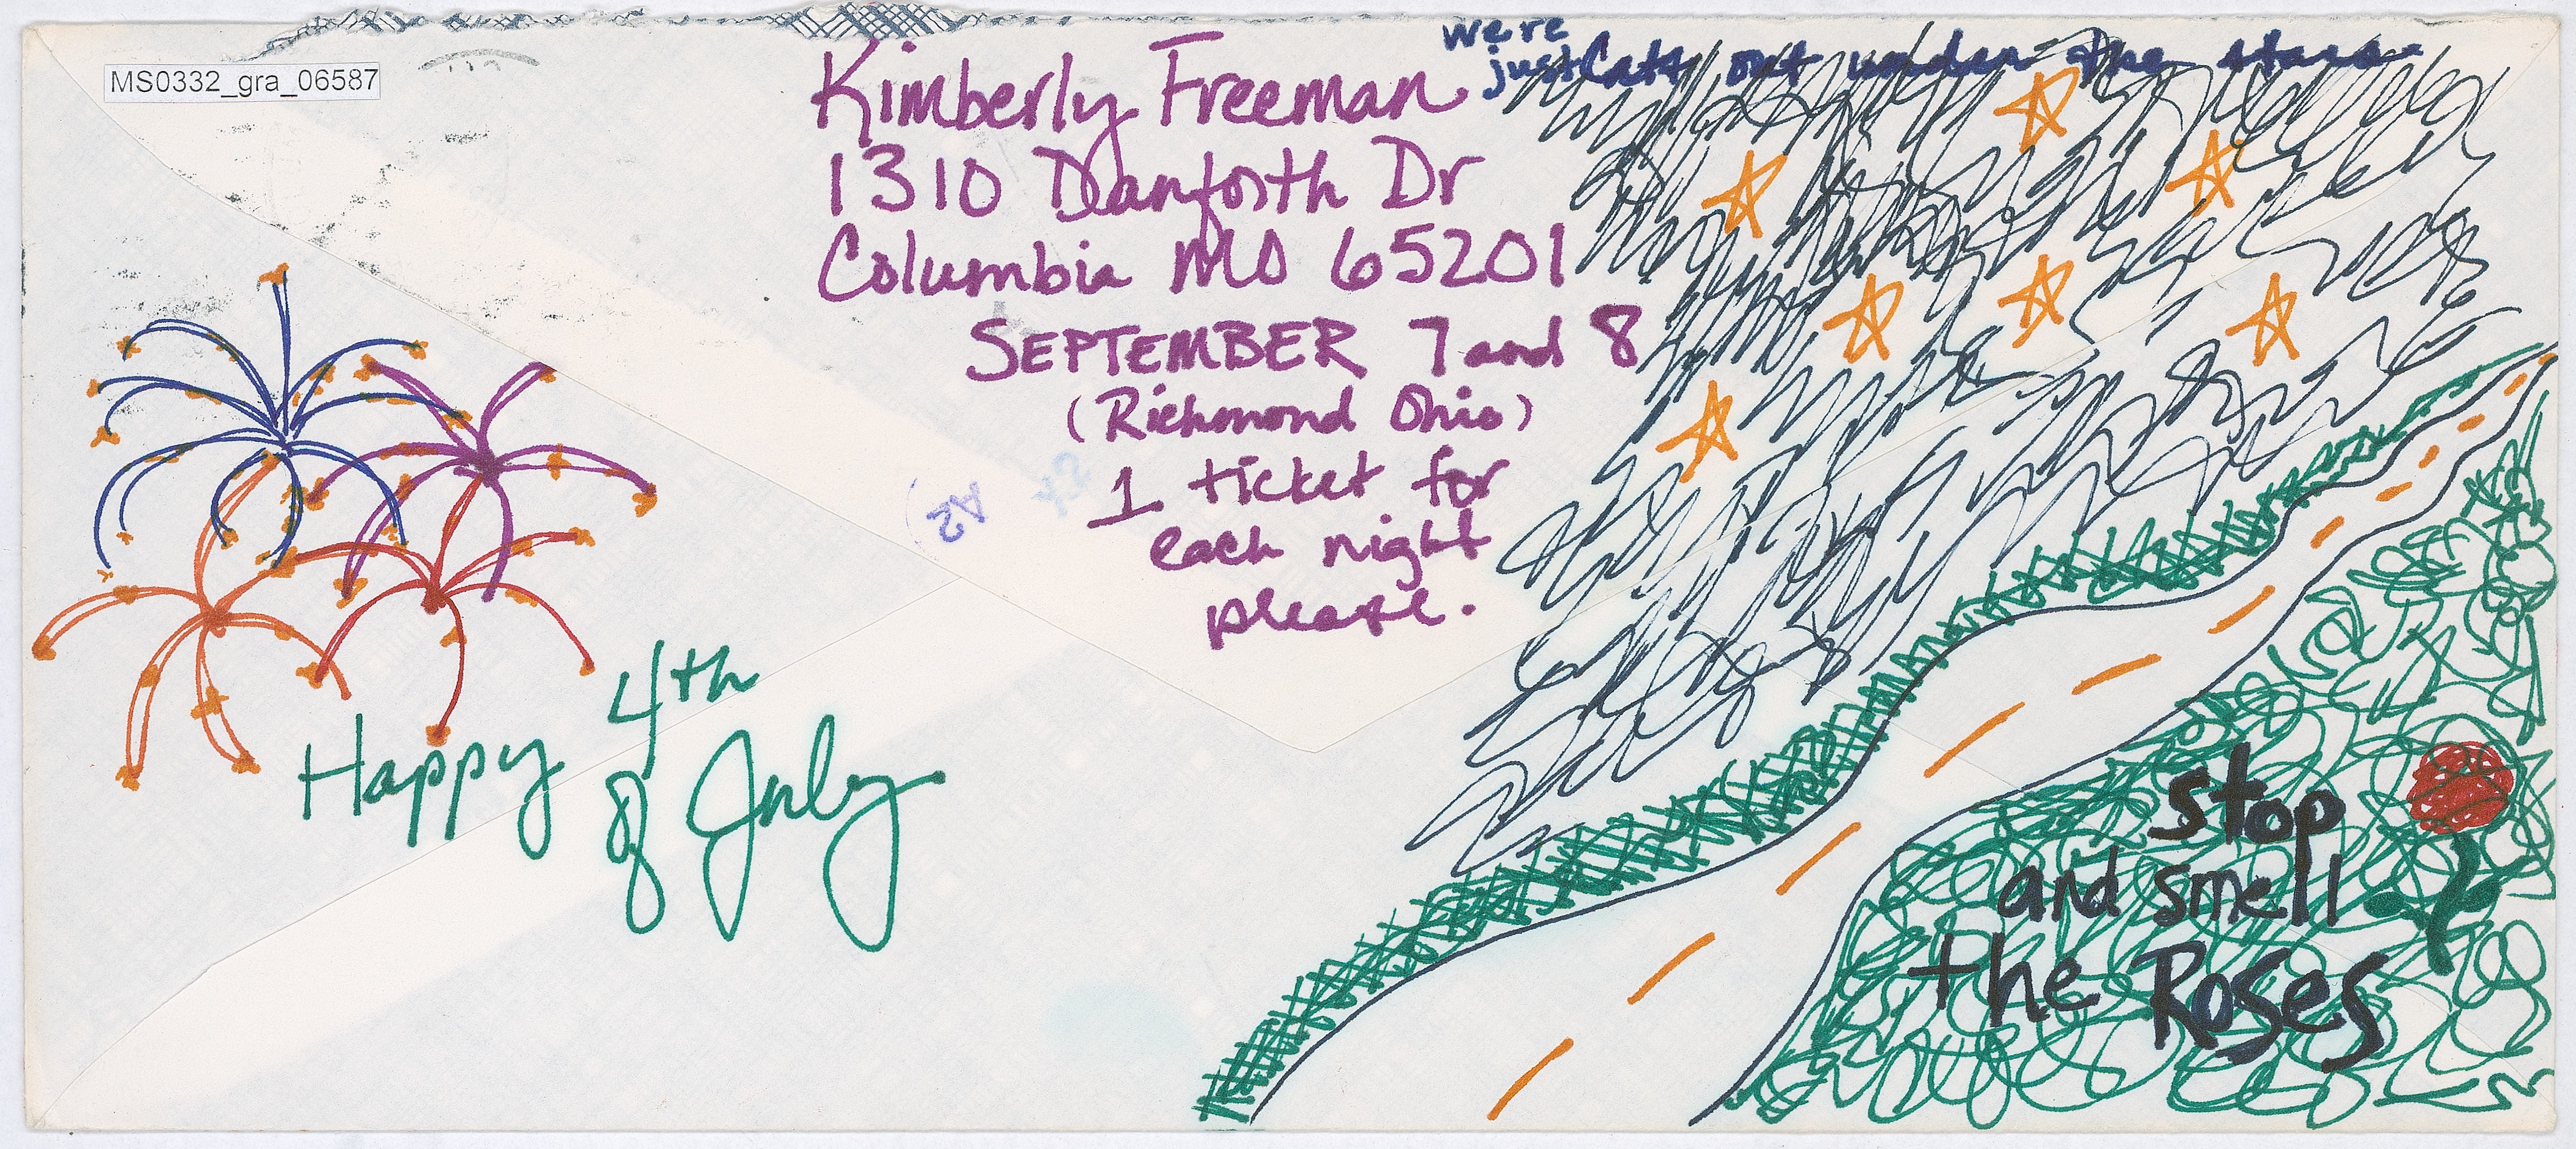 MS0332_gra_06587
were
just Cats out under the stars
Kimberly Freeman
1310 Danforth Dr
Columbia MO 65201
SEPTEMBER 7 and 8
(Richmond Ohio)
1 ticket for
each night
please.
A2
Happy 4th
of July
Stop
and smell
the Roses